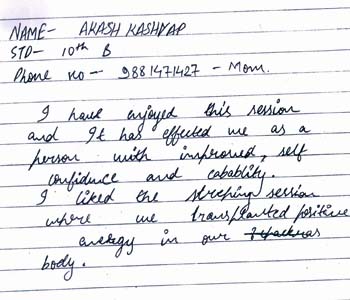 NAME- AKASH KASHYAP
STD- 10th B
Phone no - 9881471427 - Mom.
I have enjoyed this session
and It has effected me as a
person with improved, self
confidence and cabablity.
I liked the streping session
where we transplanted positive
energy in our
body.